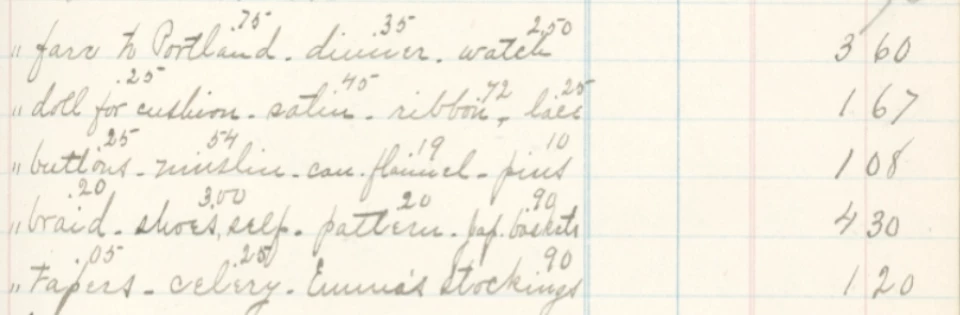 .75 .35 2.50
" fare to Portland. dinner. watch 3 60
.25 .45 .72 .25
" doll for cushion. satin. ribbon, lace 1 67
25 54 19 10
" buttons. muslin. can. flannel. pins 1 08
.20 3.00 20 .90
" braid. shoes, self. pattern. Jap. baskets 4 30
05 .25 90
" Papers. celery. Emma's stockings 1 20